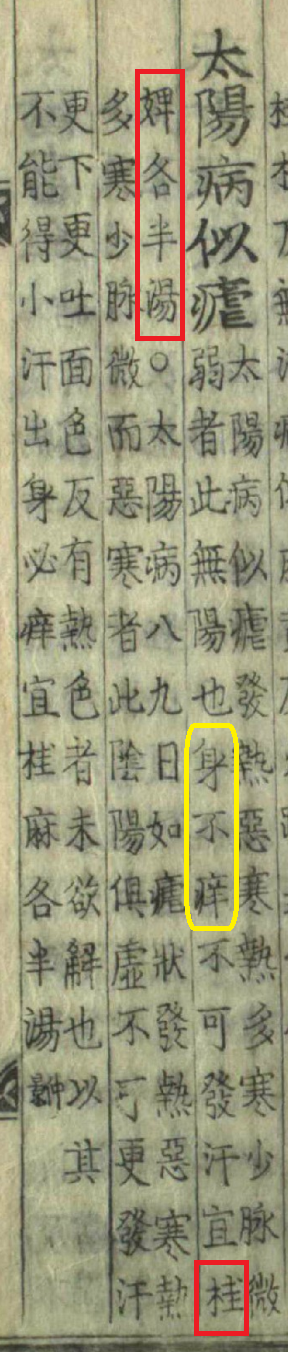 太陽病似瘧
太陽病似瘧發熱惡寒熱多寒少脉微
弱者此無陽也身不痒不可發汗宜桂
婢各半湯○太陽病八九日如瘧狀發熱惡寒熱
多寒少脉微而惡寒者此陰陽俱虛不可更發汗
更下更吐面色反有熱色者未欲解也以其
不能得小汗出身必痒宜桂麻各半湯仲景